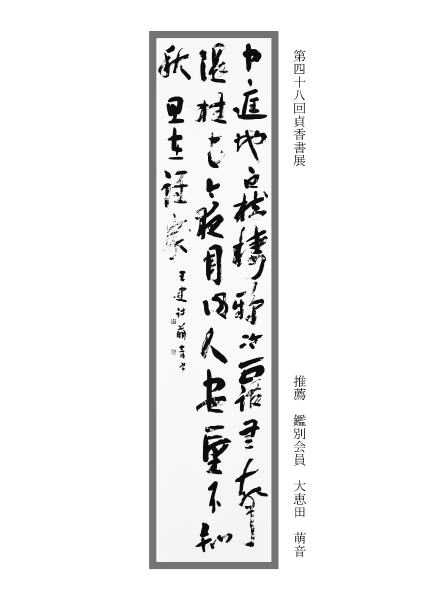 第四十八回貞香書展
推薦　鑑別会員　大恵田　萌音
中庭地白樹棲鴉冷露無聲
湿桂花今夜月明人尽望不知
秋思在誰家
王建詩 萌音書